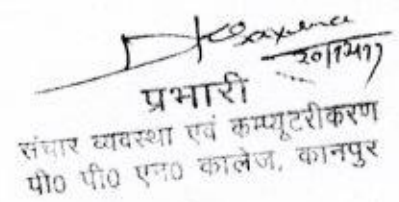 प्रभारी
संचार व्यवस्था एवं कम्प्यूटरीकरण
पी0 पी0 एन0 कालेज, कानपुर